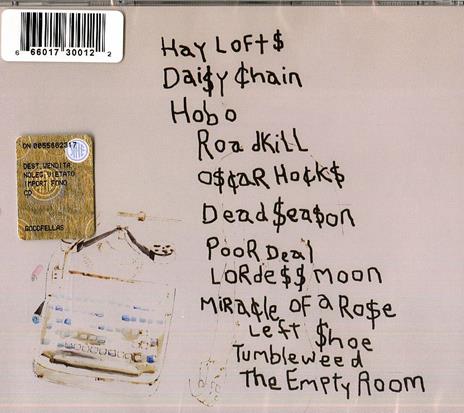 6 66017 30012 2
Hay LoFt$
Dai$y ¢hain
Hobo
RoadKiLL
o$¢aR Ho¢k$
Dead $ea$on
PooR Deal
LoRde$$ moon
MiRa¢le oF a Ro$e
LeFt $hoe
Tumbleweed
The Empty Room
DN 0055662317
DEST.VENDITA
NOLEG.VIETATO
IMPORT FONO
CD
GOODFELLAS